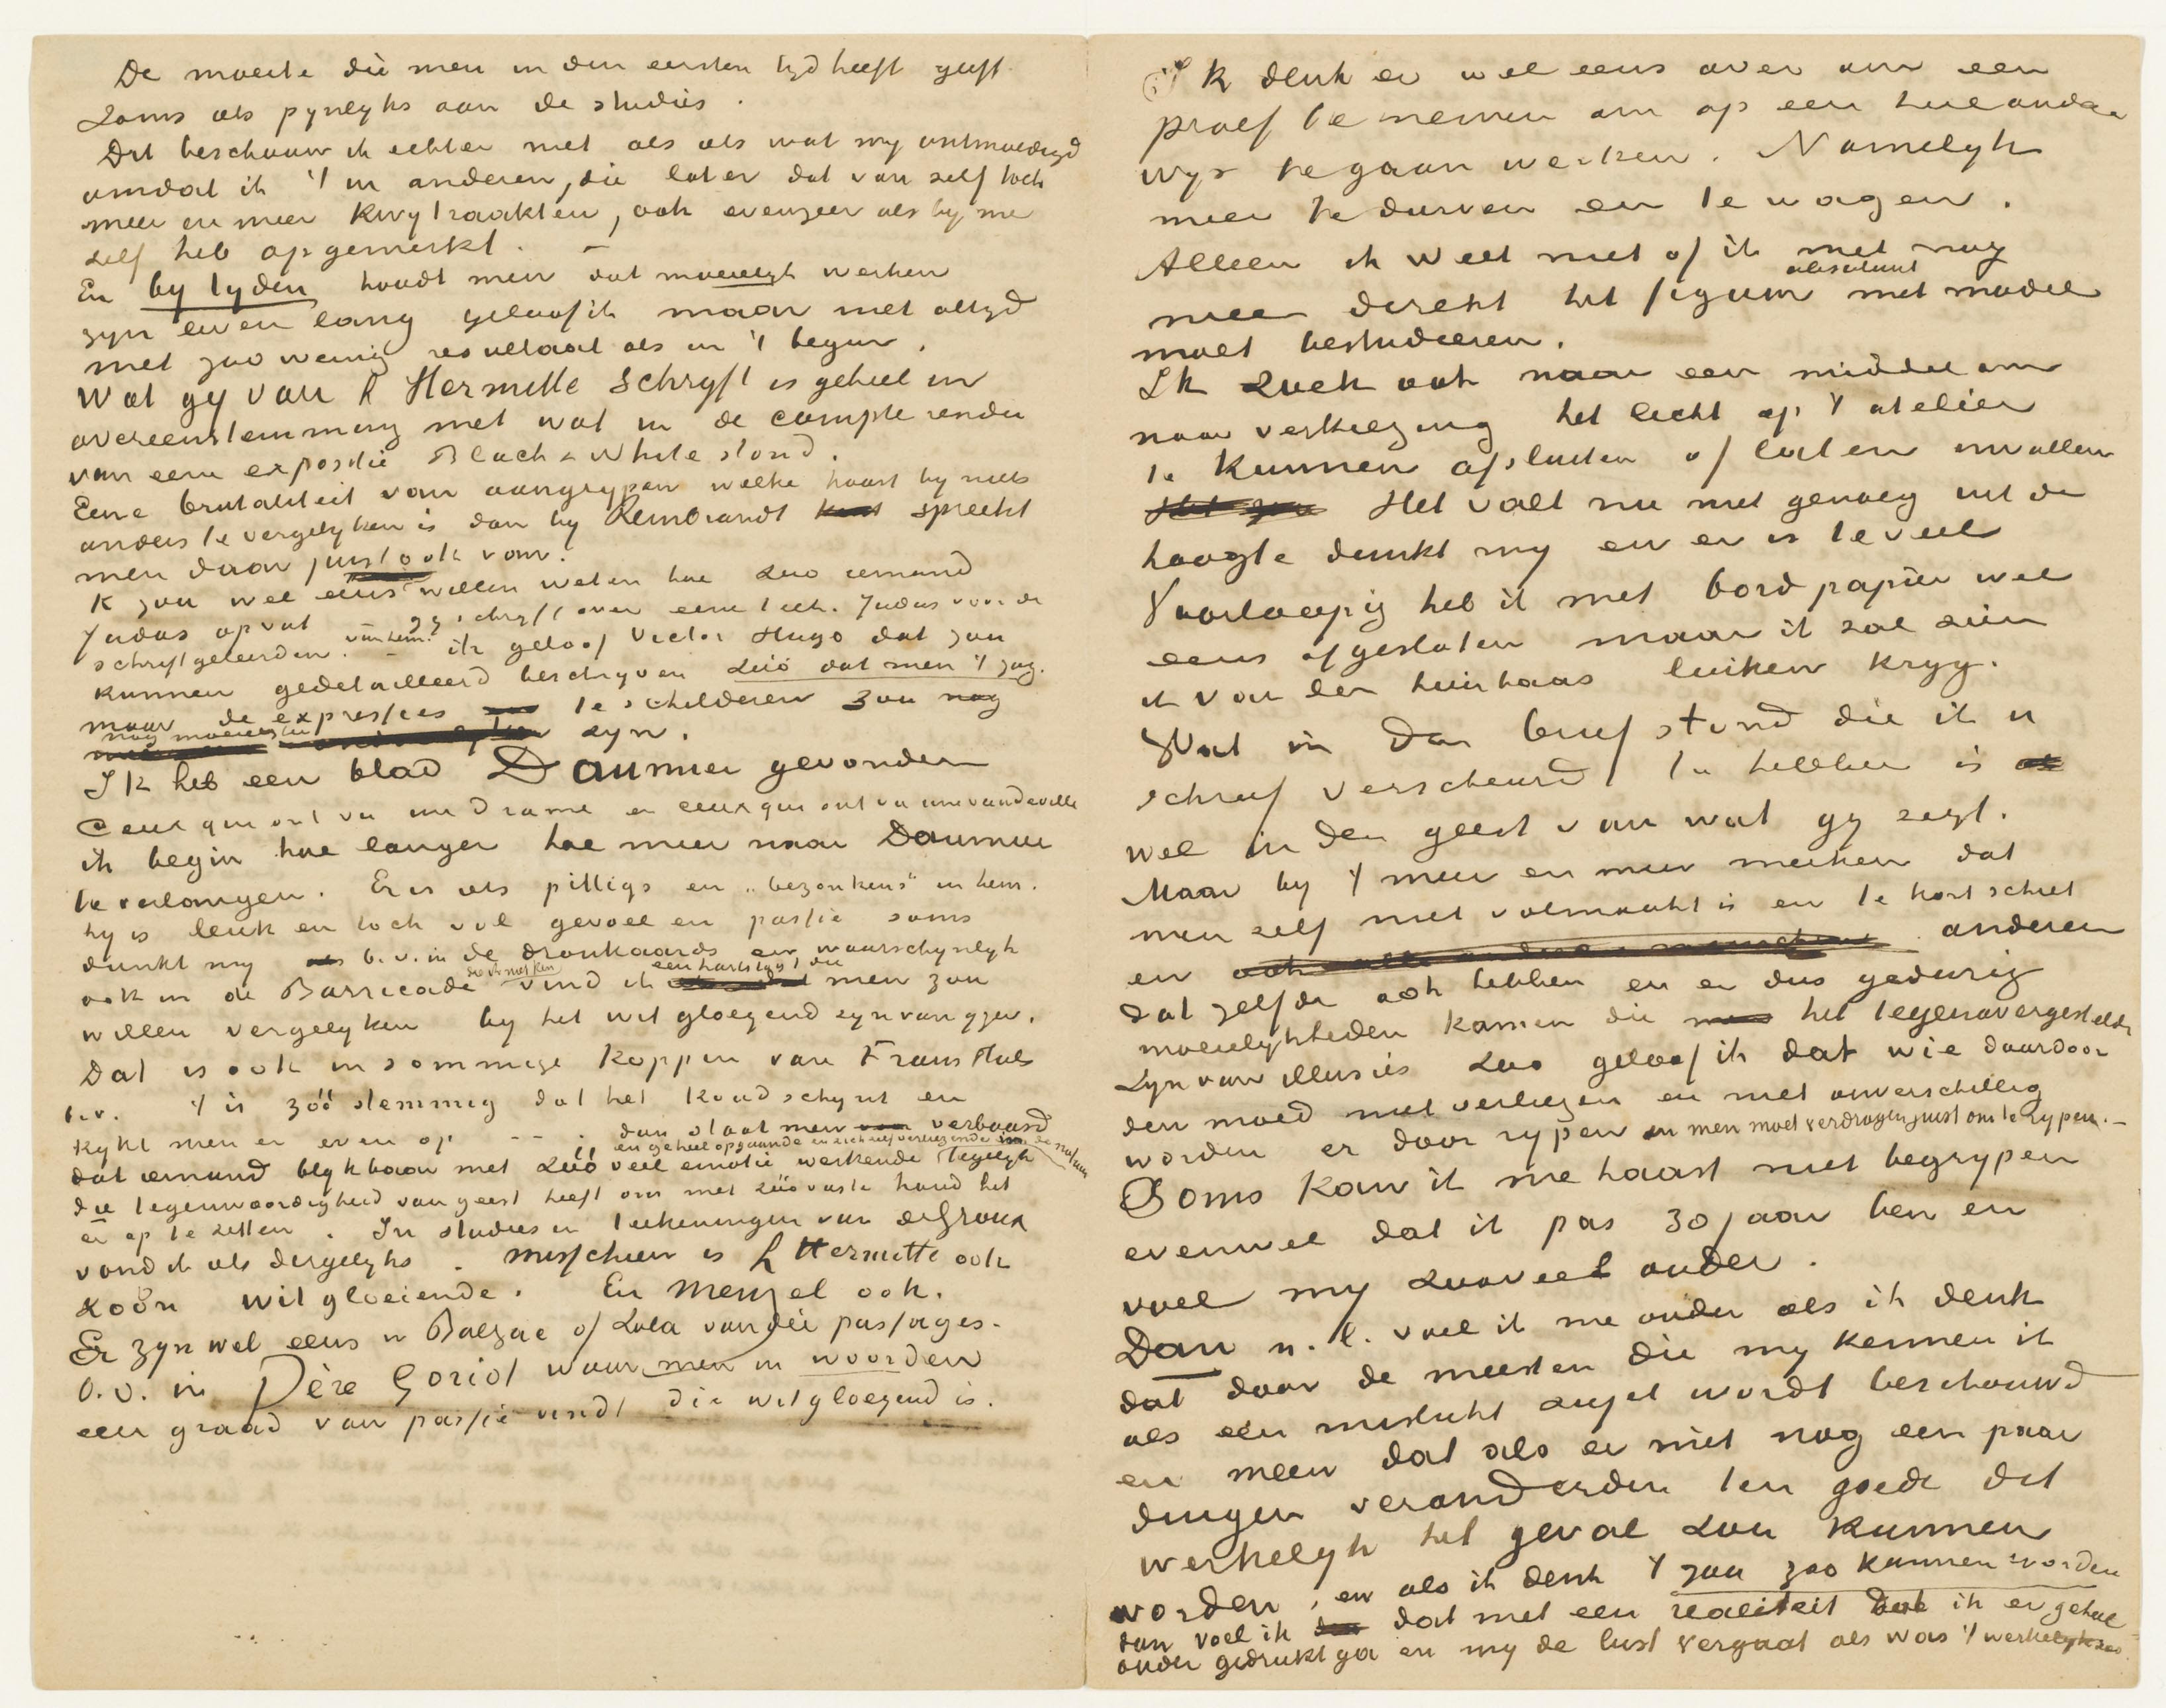 De moeite die men in den eersten tyd heeft geeft
Soms iets pynlyks aan de studies.
Dit beschouw ik echter niet als iets wat my ontmoedigd
omdat ik 't in anderen, die later dat van zelf toch
meer en meer kwyt raakten, ook evenzeer als by me
zelf heb opgemerkt. –
En by tyden houdt men dat moeielyk werken
zyn leven lang geloof ik maar niet altyd
met zoo weinig resultaat als in 't begin.
Wat gy van L Hermitte schryft is geheel in
overeenstemming met wat in de compte rendu
van eene expositie Black & White stond.
Eene brutaliteit van aangrypen welke haast by niets
anders te vergelyken is dan by Rembrandt spreekt
men daar juist ook van.
K zou wel eens willen weten hoe zoo iemand
Judas opvat gy schryft over eene teek. Judas voor de
schriftgeleerden. van hem. – ik geloof Victor Hugo dat zou
kunnen gedetailleerd beschryven zóó dat men 't zag.
maar de expressies te schilderen zou nog
nog moeielyker zyn.
Ik heb een blad Daumier gevonden
Ceux qui ont vu un drame en ceux qui ont vu une vaudeville
ik begin hoe langer hoe meer naar Daumier
te verlangen. Er is iets pittigs en „bezonkens" in hem.
hy is leuk en toch vol gevoel en passie soms
dunkt my b.v. in de dronkaards en waarschynlyk
ook in de Barricade die ik niet ken vind ik een hartstogt die men zou
willen vergelyken by het witgloeyend zyn van yzer.
Dat is ook in sommige koppen van Frans Hals
b.v. 't is zóó stemmig dat het koud schynt en
kykt men er even op - - - . dan staat men verbaasd
dat iemand blykbaar met zóó veel emotie werkende en geheel opgaande en zich zelf verliezende in de natuur tegelyk
die tegenwoordigheid van geest heeft om met zóó vaste hand het
er op te zetten. In studies en teekeningen van deGroux
vond ik iets dergelyks. misschien is L Hermitte ook
zóón witgloeiende. En Menzel ook.
Er zyn wel eens in Balzac of Zola van die passages-
b.v. in Père Goriot waar men in woorden
een graad van passie vindt die witgloeyend is.
Ik denk er wel eens over om een
proef te nemen om op een heel andere
wys te gaan werken. Namelyk
meer te durven en te wagen.
Alleen ik weet niet of ik niet nog
meer direkt het figuur absoluut met model
moet bestudeeren.
Ik zoek ook naar een middel om
naar verkiezing het licht op 't atelier
te kunnen afsluiten of laten invallen
Het valt nu niet genoeg uit de
hoogte dunkt my en er is te veel
Voorloopig heb ik met bordpapier wel
eens afgesloten maar ik zal zien
ik van den huisbaas luiken kryg.
Wat in den brief stond die ik u
schreef verscheurd te hebben is
wel in den geest van wat gy zegt.
Maar by 't meer en meer merken dat
men zelf niet volmaakt is en te kort schiet
en anderen
dat zelfde ook hebben en er dus gedurig
moeielykheden komen die het tegenovergestelde
zyn van illusies zoo geloof ik dat wie daardoor
den moed niet verliezen en niet onverschillig
worden er door rypen en men moet verdragen juist om te rypen. –
Soms kan ik me haast niet begrypen
evenwel dat ik pas 30 jaar ben en
voel my zooveel ouder.
Dan n.l. voel ik me ouder als ik denk
dat door de meesten die my kennen ik
als een mislukt sujet wordt beschouwd
en meen dat als er niet nog een paar
dingen veranderden ten goede dit
werkelyk het geval zou kunnen
worden, en als ik denk 't zou zoo kunnen worden
dan voel ik dat met een realiteit dat ik er geheel
onder gedrukt ga en my de lust vergaat als was 't werkelyk zoo.